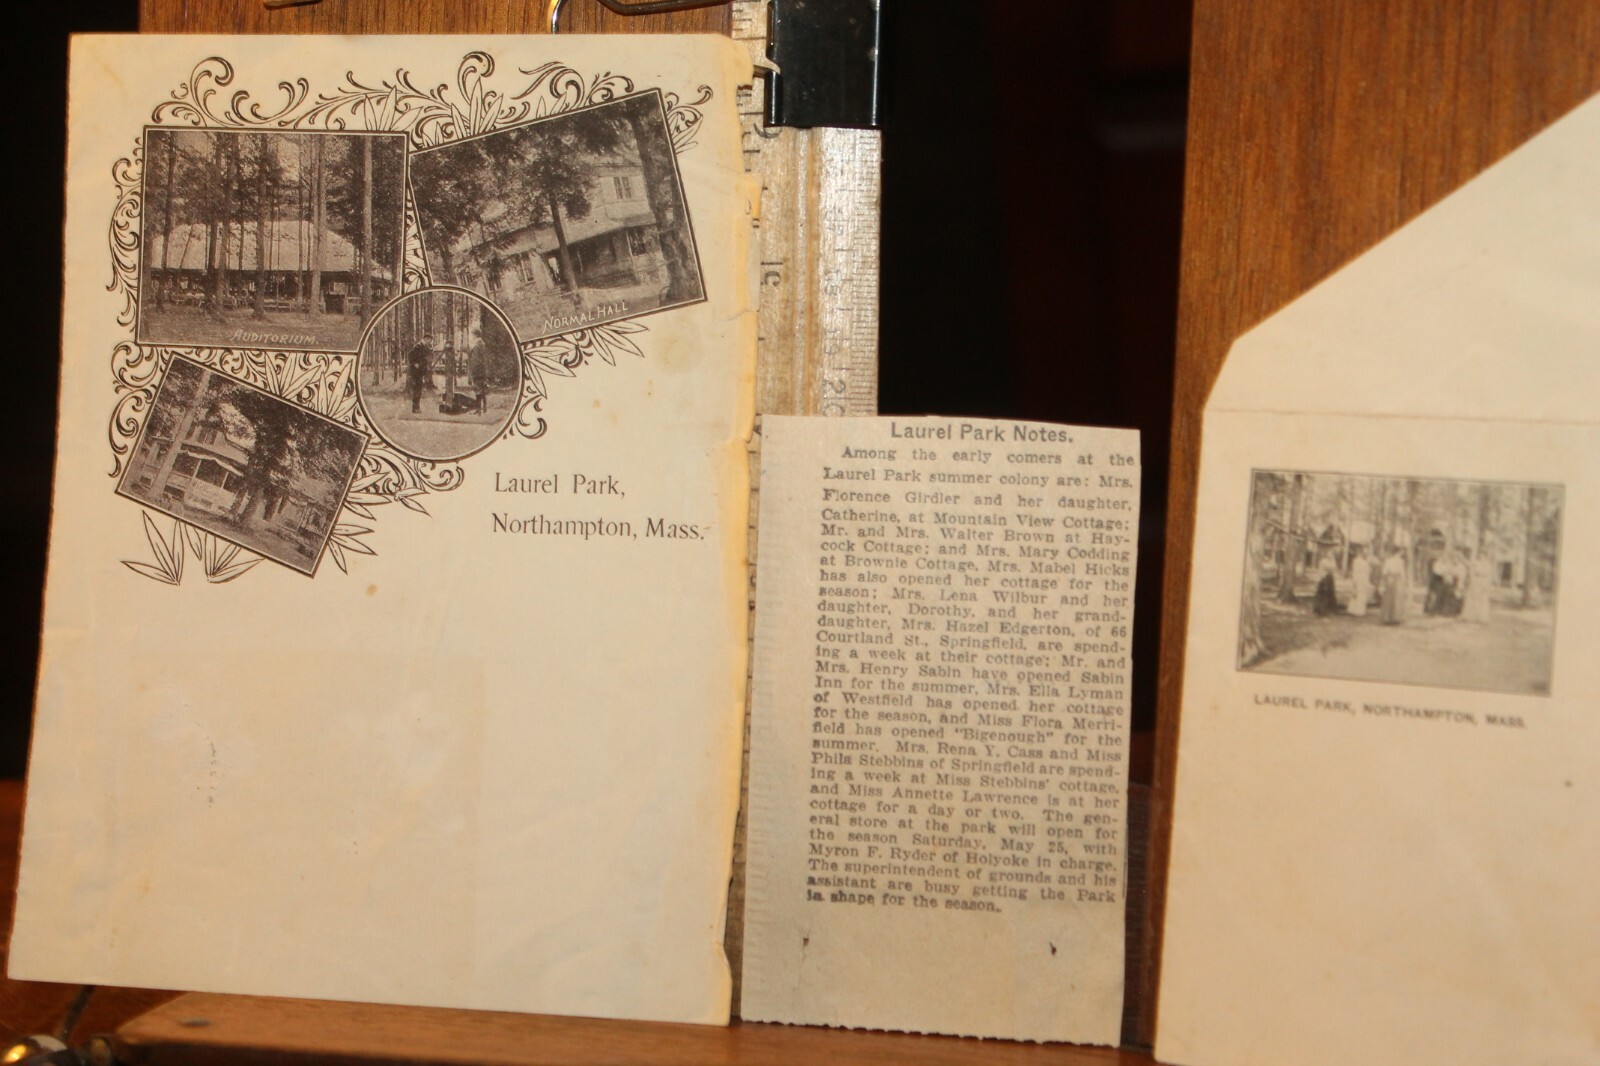 AUDITORIUM.
NORMAL HALL
Laurel Park,
Northampton, Mass.
Laurel Park Notes.
Among the early comers at the
Laurel Park summer colony are: Mrs.
Florence Girdler and her daughter,
Catherine, at Mountain View Cottage;
Mr. and Mrs. Walter Brown at Hay-
cock Cottage; and Mrs. Mary Codding
at Brownie Cottage. Mrs. Mabel Hicks
has also opened her cottage for the
season; Mrs. Lena Wilbur and her
daughter, Dorothy, and her grand-
daughter, Mrs. Hazel Edgerton, of 66
Courtland St., Springfield, are spend-
ing a week at their cottage; Mr. and
Mrs. Henry Sabin have opened Sabin
Inn for the summer, Mrs. Ella Lyman
of Westfield has opened her cottage
for the season, and Miss Flora Merri-
field has opened "Bigenough" for the
summer. Mrs. Rena Y. Cass and Miss
Phila Stebbins of Springfield are spend-
ing a week at Miss Stebbins' cottage,
and Miss Annette Lawrence is at her
cottage for a day or two. The gen-
eral store at the park will open for
the season Saturday, May 25, with
Myron F. Ryder of Holyoke in charge.
The superintendent of grounds and his
assistant are busy getting the Park
in shape for the season.
LAUREL PARK, NORTHAMPTON, MASS.